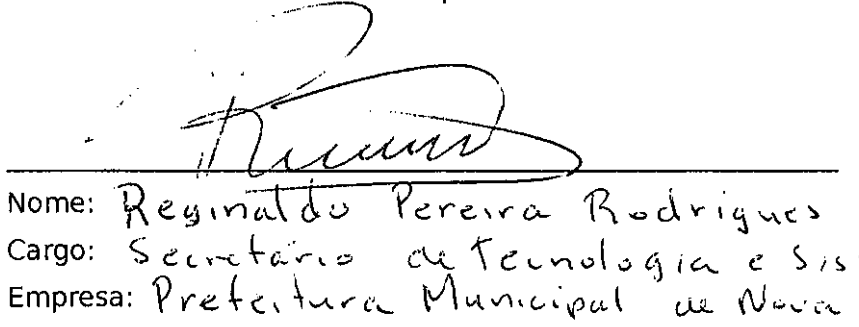 Nome: Reginaldo Pereira Rodrigues
Cargo: Secretário de Tecnologia e Sis
Empresa: Prefeitura Municipal de Nova